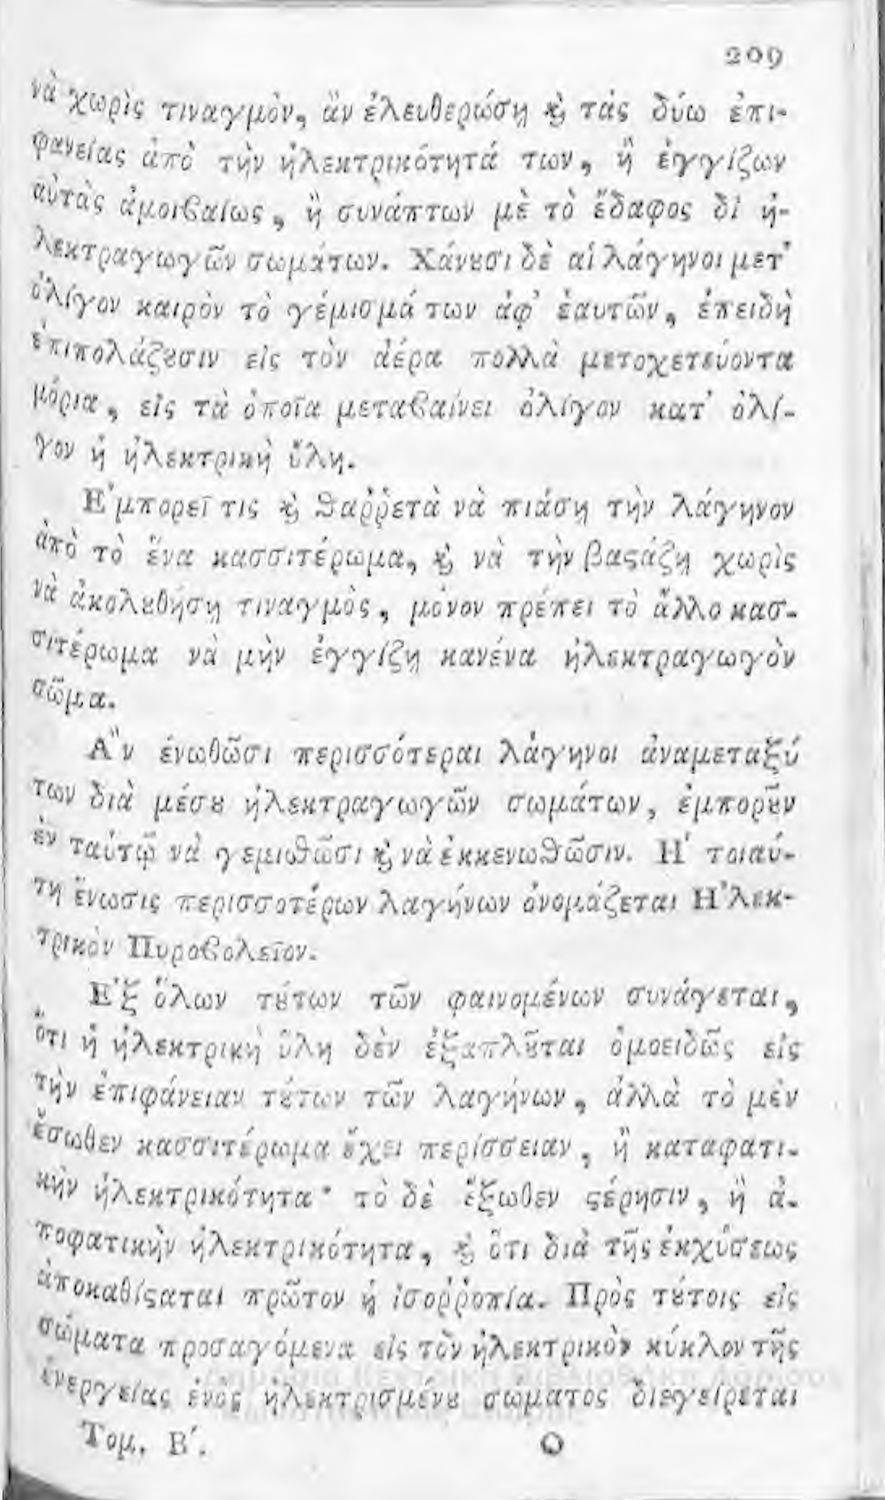 209
νὰ χωρὶς τιναγμὸν, ἂν ἐλευθερώσῃ ϗ τὰς δύω ἐπι-
φανείας ἀπὸ τὴν ἠλεκτρικότητά των, ἢ ἐγγίζων
αὐτὰς ἀμοιβαίως, ἢ συνάπτων μὲ τὸ ἔδαφος δἰ ἠ-
λεκτραγωγῶν σωμάτων. Χάνȣσι δὲ αἱ λάγηνοι μετ᾽
ὀλίγον καιρὸν τὸ γέμισμά των ἀφ᾽ ἑαυτῶν, ἐπειδὴ
ἐπιπολάζȣσιν εἰς τὸν ἀέρα πολλὰ μετοχετεύοντα
μόρια, εἰς τὰ ὁποῖα μεταβαίνει ὀλίγον κατ᾽ ὀλί-
γον ἡ ἠλεκτρικὴ ὕλη.
Ἐμπορεῖ τις ϗ ϑαῤῥετὰ νὰ πιάσῃ τὴν λάγηνον
ἀπὸ τὸ ἕνα κασσιτέρωμα, ϗ νὰ τὴν βαϛάζῃ χωρὶς
νὰ ἀκολȣθήσῃ τιναγμὸς, μόνον πρέπει τὸ ἄλλο κασ-
σιτέρωμα νὰ μὴν ἐγγίζῃ κανένα ἠλεκτραγωγὸν
σῶμα.
Ἂν ἑνωθῶσι περισσότεραι λάγηνοι ἀναμεταξύ
των διὰ μέσȣ ἠλεκτραγωγῶν σωμάτων, ἐμπορȣ͂ν
ἐν ταὐτῷ νὰ γεμιϑῶσι ϗ νὰ ἐκκενωϑῶσιν. Ἡ τοιαύ-
τη ἕνωσις περισσοτέρων λαγήνων ὀνομάζεται Ἠλεκ-
τρικὸν Πυροβολεῖον.
Ἐξ ὅλων τȣ́των τῶν φαινομένων συνάγεται,
ὅτι ἡ ἠλεκτρικὴ ὕλη δὲν ἐξαπλȣ͂ται ὁμοειδῶς εἰς
τὴν ἐπιφάνειαν τȣ́των τῶν λαγήνων, ἀλλὰ τὸ μὲν
ἔσωθεν κασσιτέρωμα ἔχει περίσσειαν, ἢ καταφατι-
κὴν ἠλεκτρικότητα· τὸ δὲ ἔξωθεν ϛέρησιν, ἢ ἀ-
ποφατικὴν ἠλεκτρικότητα, ϗ ὅτι διὰ τῆς ἐκχύσεως
ἀποκαθίϛαται πρῶτον ἡ ἰσοῤῥοπία. Πρὸς τȣ́τοις εἰς
σώματα προσαγόμενα εἰς τὸν ἠλεκτρικὸν κύκλον τῆς
ἐνεργείας ἑνὸς ἠλεκτρισμένȣ σώματος διεγείρεται
Τομ. Β΄. O